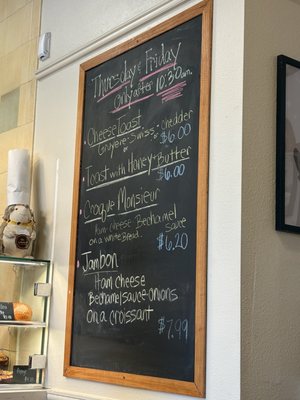 Thursday & Friday
Only after 10:30am.
Cheese Toast
Gruyere-Swiss-Chedder
or
or
$6.00
Toast with Honey-Butter
$6.00
Croque Monsieur
Ham-cheese Bechamel
on a white bread. sauce
$6.20
Jambon
Ham cheese
Bechamel sauce-onions
on a croissant
$7.99